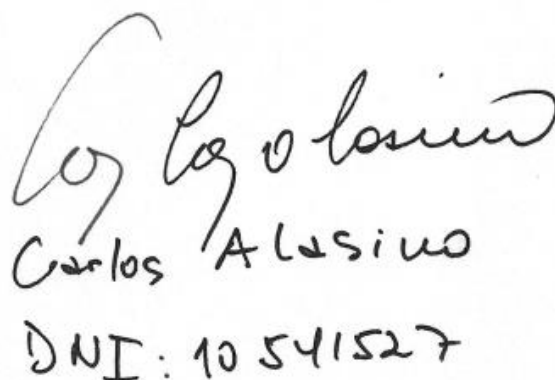 Carlos Alasino
DNI: 10541527